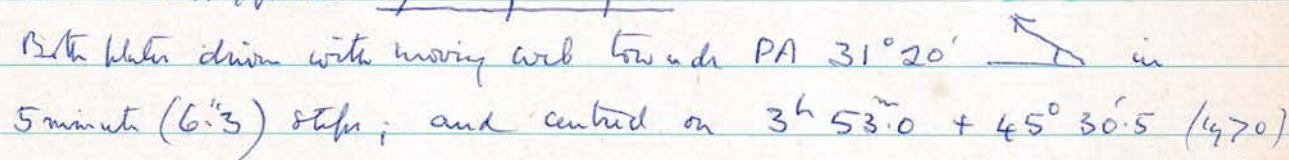 Both plates driven with moving web towards PA 31° 20' in
5 minute (6".3) steps; and centred on 3h 53m.0 + 45° 30'.5 (1970)